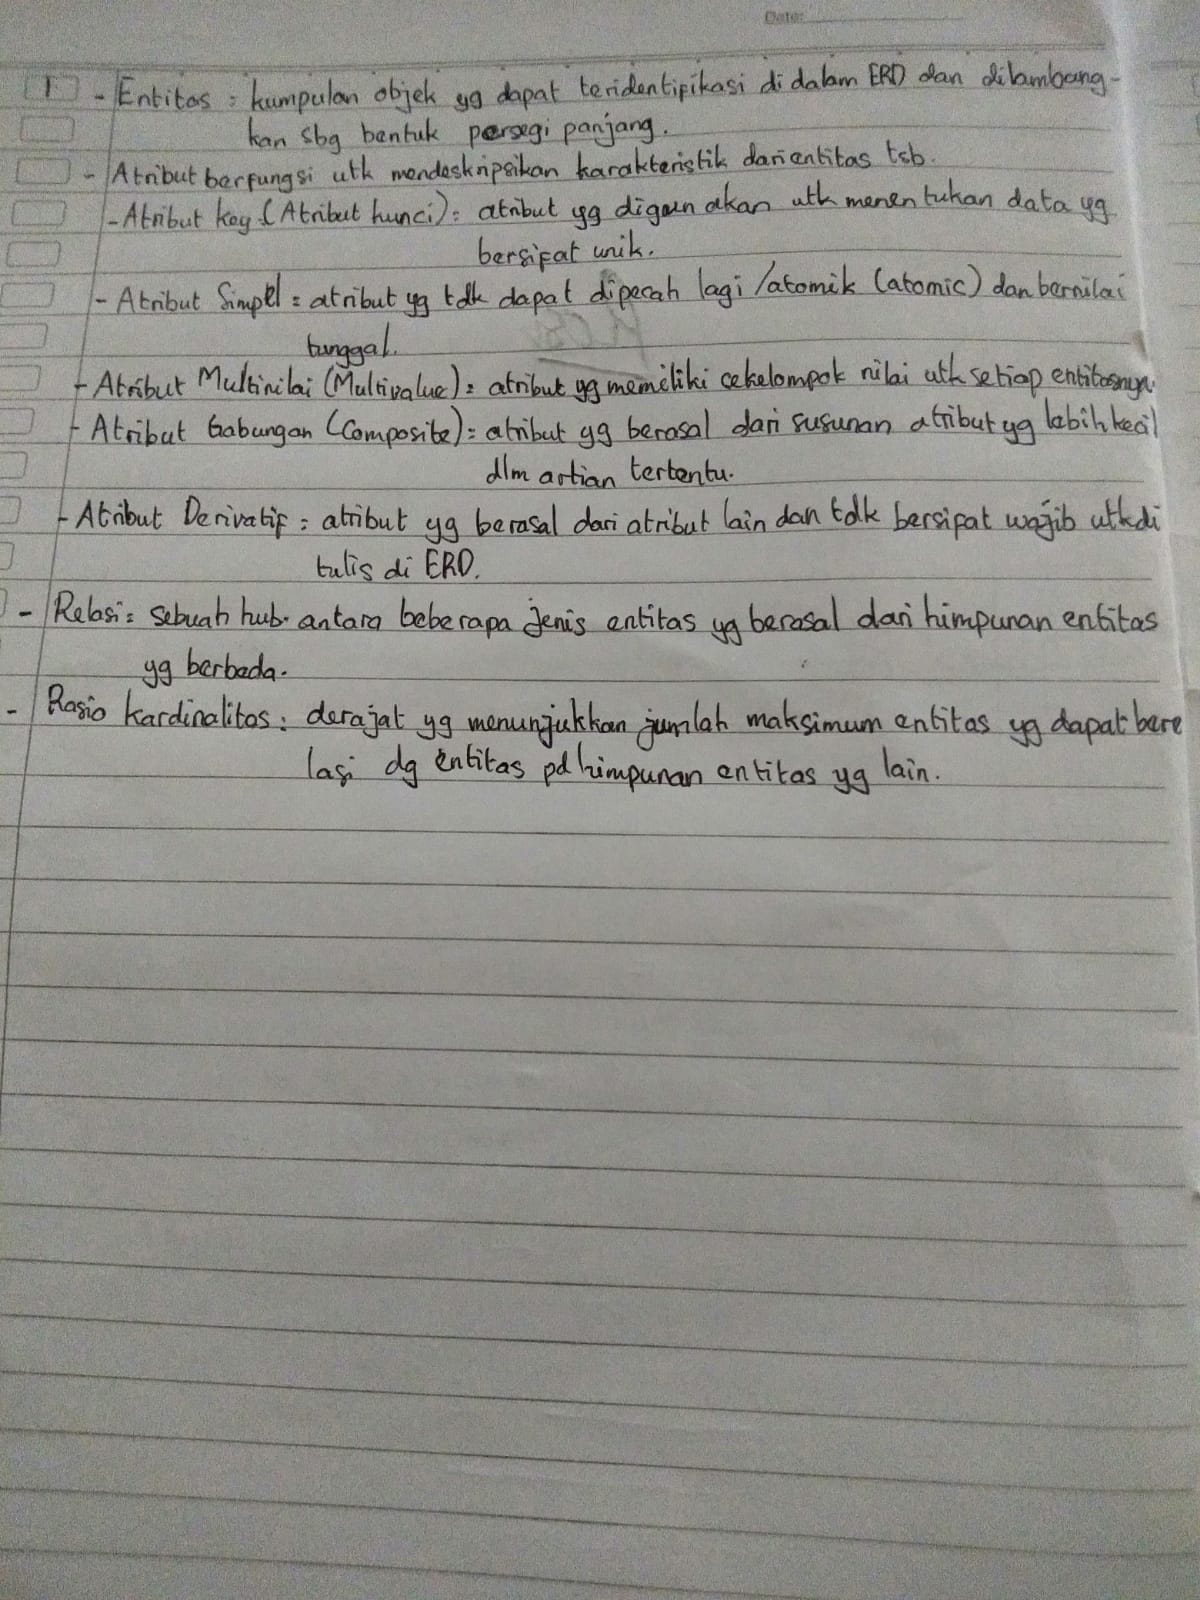 Date:
1. - Entitas : kumpulan objek yg dapat teridentifikasi di dalam ERD dan dilambang-
kan sbg bentuk persegi panjang.
- Atribut berfungsi utk mendeskripsikan karakteristik dari entitas tsb.
- Atribut key (Atribut kunci) : atribut yg digunakan utk menentukan data yg
bersifat unik.
- Atribut Simpel : atribut yg tdk dapat dipecah lagi /atomik (atomic) dan bernilai
tunggal.
- Atribut Multinilai (Multivalue) : atribut yg memeliki sekelompok nilai utk setiap entitasnya.
- Atribut Gabungan (Composite) : atribut yg berasal dari susunan atribut yg lebih kecil
dlm artian tertentu.
- Atribut Derivatif : atribut yg berasal dari atribut lain dan tdk bersifat wajib utk di
tulis di ERD.
- Relasi : sebuah hub. antara beberapa jenis entitas yg berasal dari himpunan entitas
yg berbeda.
- Rasio kardinalitas : derajat yg menunjukkan jumlah maksimum entitas yg dapat bere
lasi dg entitas pd himpunan entitas yg lain.